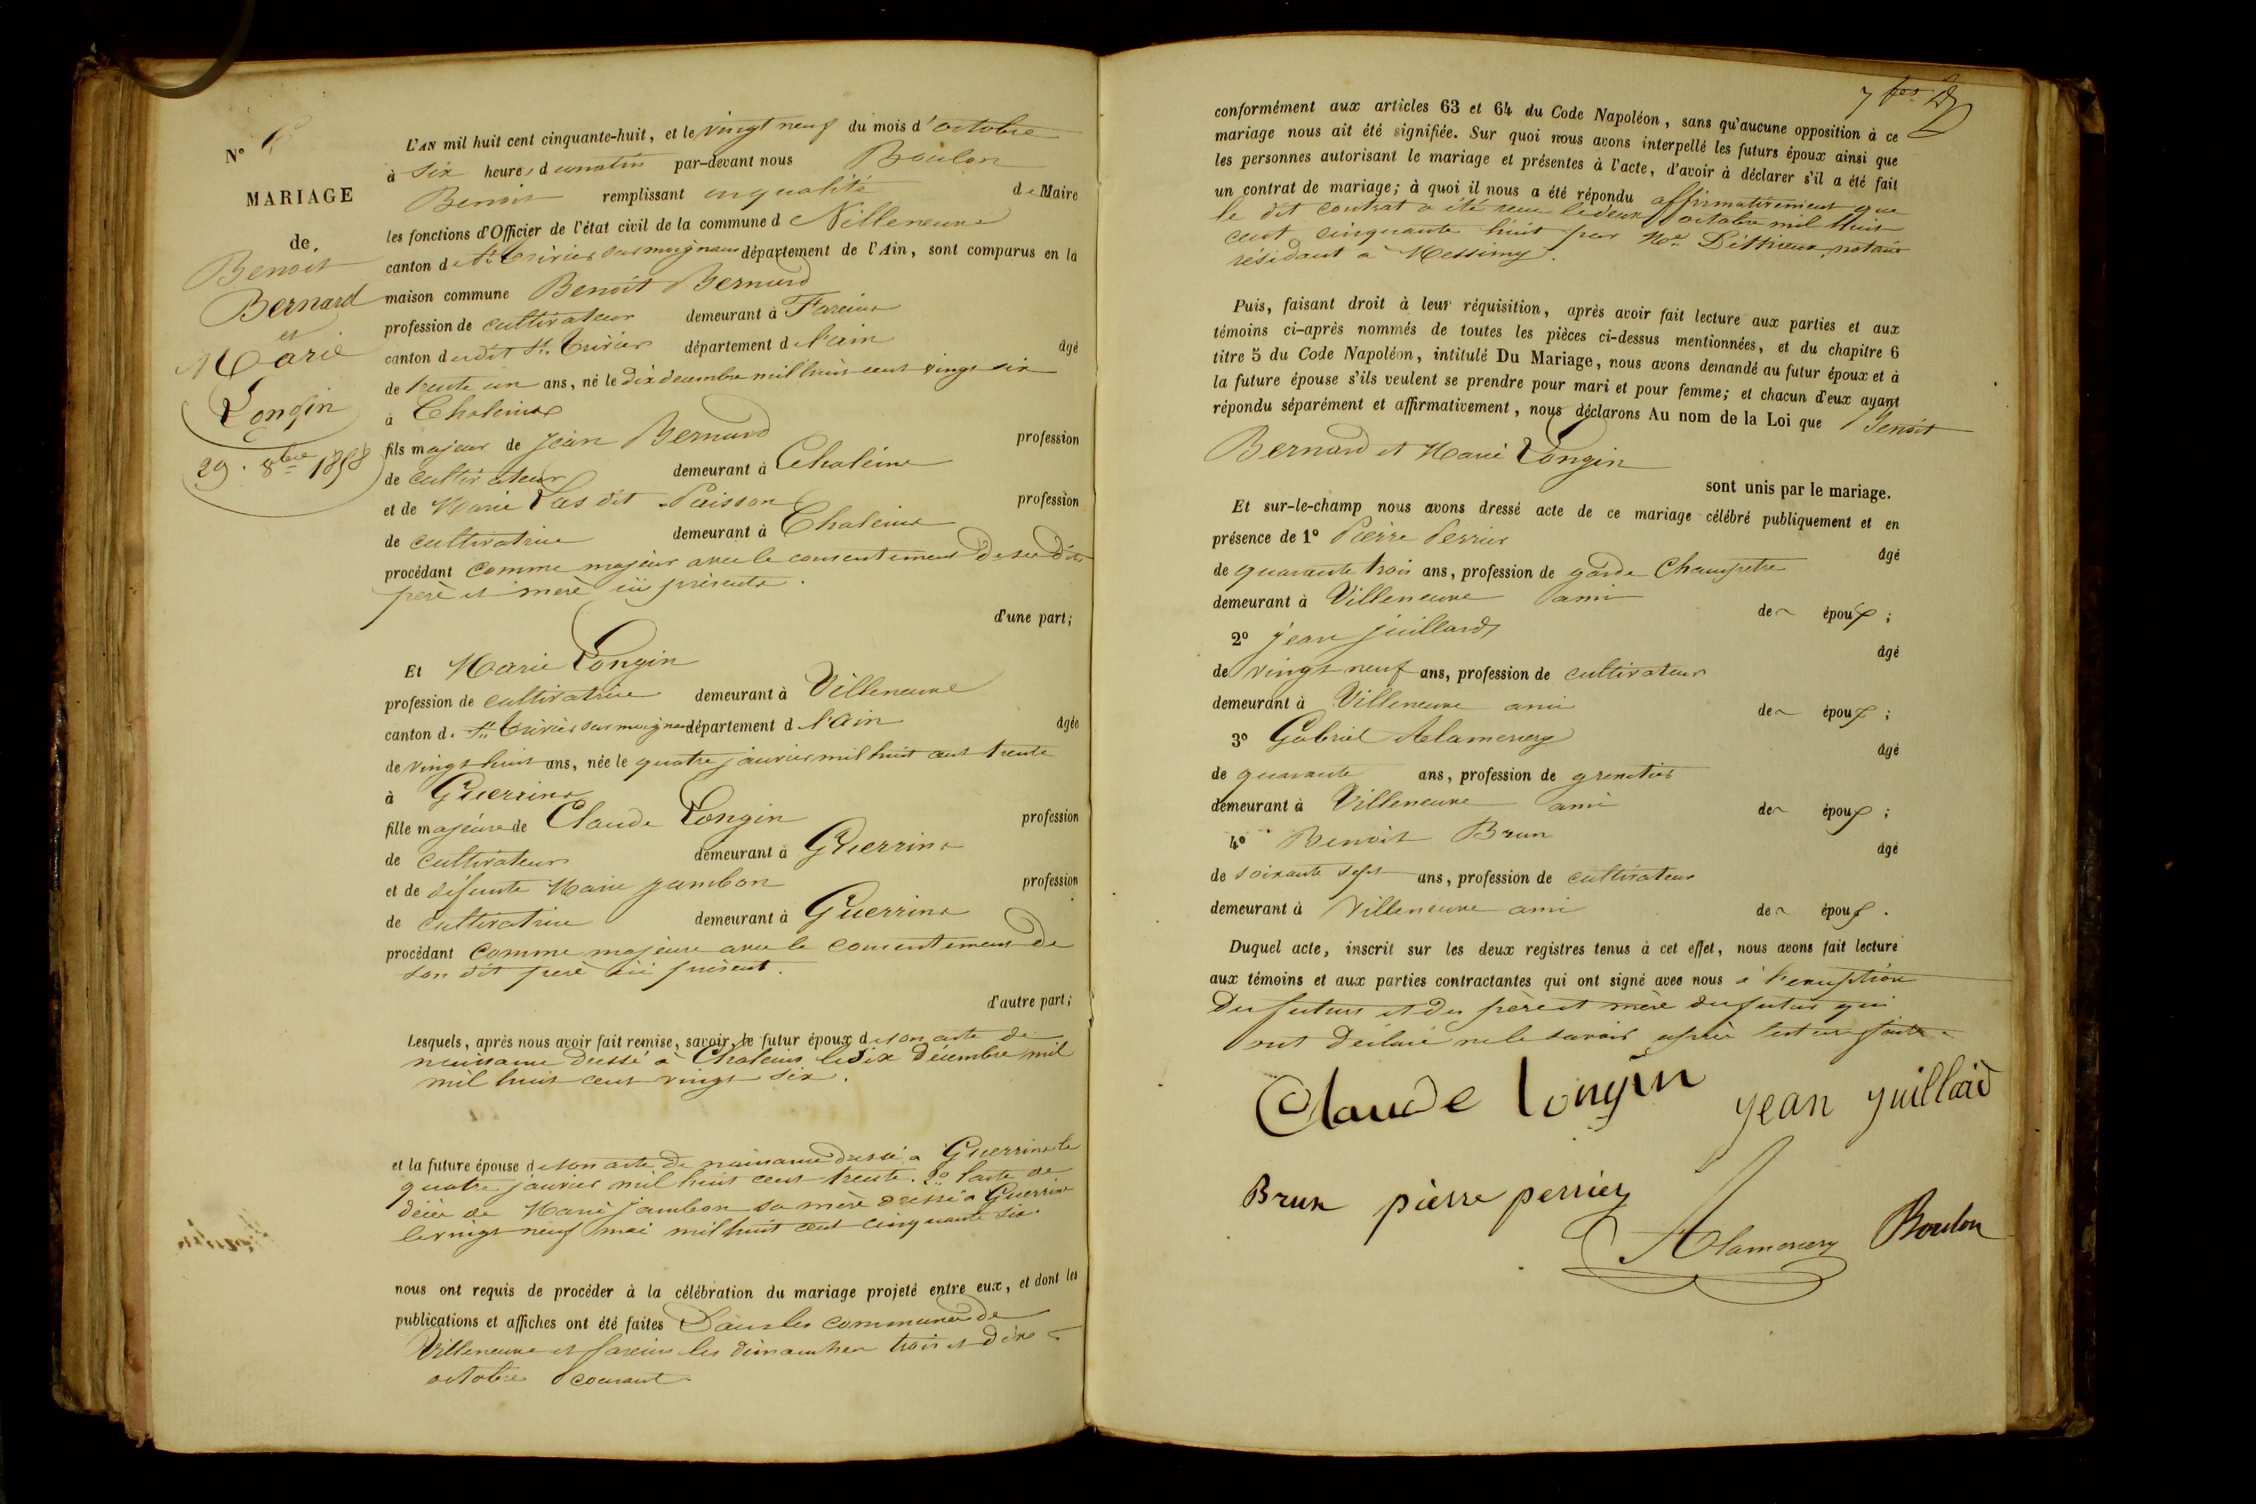 N° 6
MARIAGE
de
Benoit
Bernard
et
Marie
Longin
29. 8bre 1858
L'AN mil huit cent cinquante-huit, et le vingt neuf du mois d'octobre
à six heures du matin par-devant nous Boulon
Benoit remplissant en qualité de Maire
les fonctions d'Officier de l'état civil de la commune de Villeneuve
canton de St. Trivier sur moignans département de l'Ain, sont comparus en la
maison commune Benoit Bernard
profession de cultivateur demeurant à Fareins
canton du dit St. Trivier département de l'ain âgé
de trente un ans, né le dix decembre mil huit cent vingt six
à Chaleins
fils majeur de Jean Bernard profession
de cultivateur demeurant à Chaleins
et de Marie Las dit Paisson profession
de cultivatrice demeurant à Chaleins
procédant comme majeur avec le consentement de ses dits
père et mère ici présents.
d'une part;
Et Marie Longin
profession de cultivatrice demeurant à Villeneuve
canton de St. Trivier sur moignans département de l'ain âgée
de vingt huit ans, née le quatre janvier mil huit cent trente
à Guerrins
fille majeure de Claude Longin profession
de cultivateur demeurant à Guerrins
et de défunte Marie Jambon profession
de cultivatrice demeurant à Guerrins
procédant comme majeure avec le consentement de
son dit père ici présent.
d'autre part;
Lesquels, après nous avoir fait remise, savoir, le futur époux de son acte de
naissance dressé à Chaleins le dix décembre mil
mil huit cent vingt six.
et la future épouse de son acte de naissance dressé à Guerrins le
quatre janvier mil huit cent trente. 2° l'acte de
décès de Marie Jambon sa mère dressé à Guerrins
le vingt neuf mai mil huit cent cinquante six.
nous ont requis de procéder à la célébration du mariage projeté entre eux, et dont les
publications et affiches ont été faites Dans les communes de
Villeneuve et fareins les dimanches trois et dix
octobre courant
7
conformément aux articles 63 et 64 du Code Napoléon, sans qu'aucune opposition à ce
mariage nous ait été signifiée. Sur quoi nous avons interpellé les futurs époux ainsi que
les personnes autorisant le mariage et présentes à l'acte, d'avoir à déclarer s'il a été fait
un contrat de mariage; à quoi il nous a été répondu affirmativement que
le dit contrat a été recu le deux octobre mil huit
cent cinquante huit par Me. notaire
résidant à Messimy.
Puis, faisant droit à leur réquisition, après avoir fait lecture aux parties et aux
témoins ci-après nommés de toutes les pièces ci-dessus mentionnées, et du chapitre 6
titre 5 du Code Napoléon, intitulé Du Mariage, nous avons demandé au futur époux et à
la future épouse s'ils veulent se prendre pour mari et pour femme; et chacun d'eux ayant
répondu séparément et affirmativement, nous déclarons Au nom de la Loi que Benoit
Bernard et Marie Longin
sont unis par le mariage.
Et sur-le-champ nous avons dressé acte de ce mariage célébré publiquement et en
présence de 1° Pierre Perrier âgé
de quarante trois ans, profession de garde Champetre
demeurant à Villeneuve ami des époux;
2° Jean Juillard âgé
de vingt neuf ans, profession de cultivateur
demeurant à Villeneuve ami des époux;
3° Gabriel Alamercery âgé
de quarante ans, profession de grenetier
demeurant à Villeneuve ami des époux;
4° Benoit Brun âgé
de soixante sept ans, profession de cultivateur
demeurant à Villeneuve ami des époux.
Duquel acte, inscrit sur les deux registres tenus à cet effet, nous avons fait lecture
aux témoins et aux parties contractantes qui ont signé avec nous à l'exception
des futurs et des père et mère du futur qui
ont déclaré ne le savoir après lecture faite
Claude longin Jean Juillard
Brun pierre perrier
Alamercery Boulon